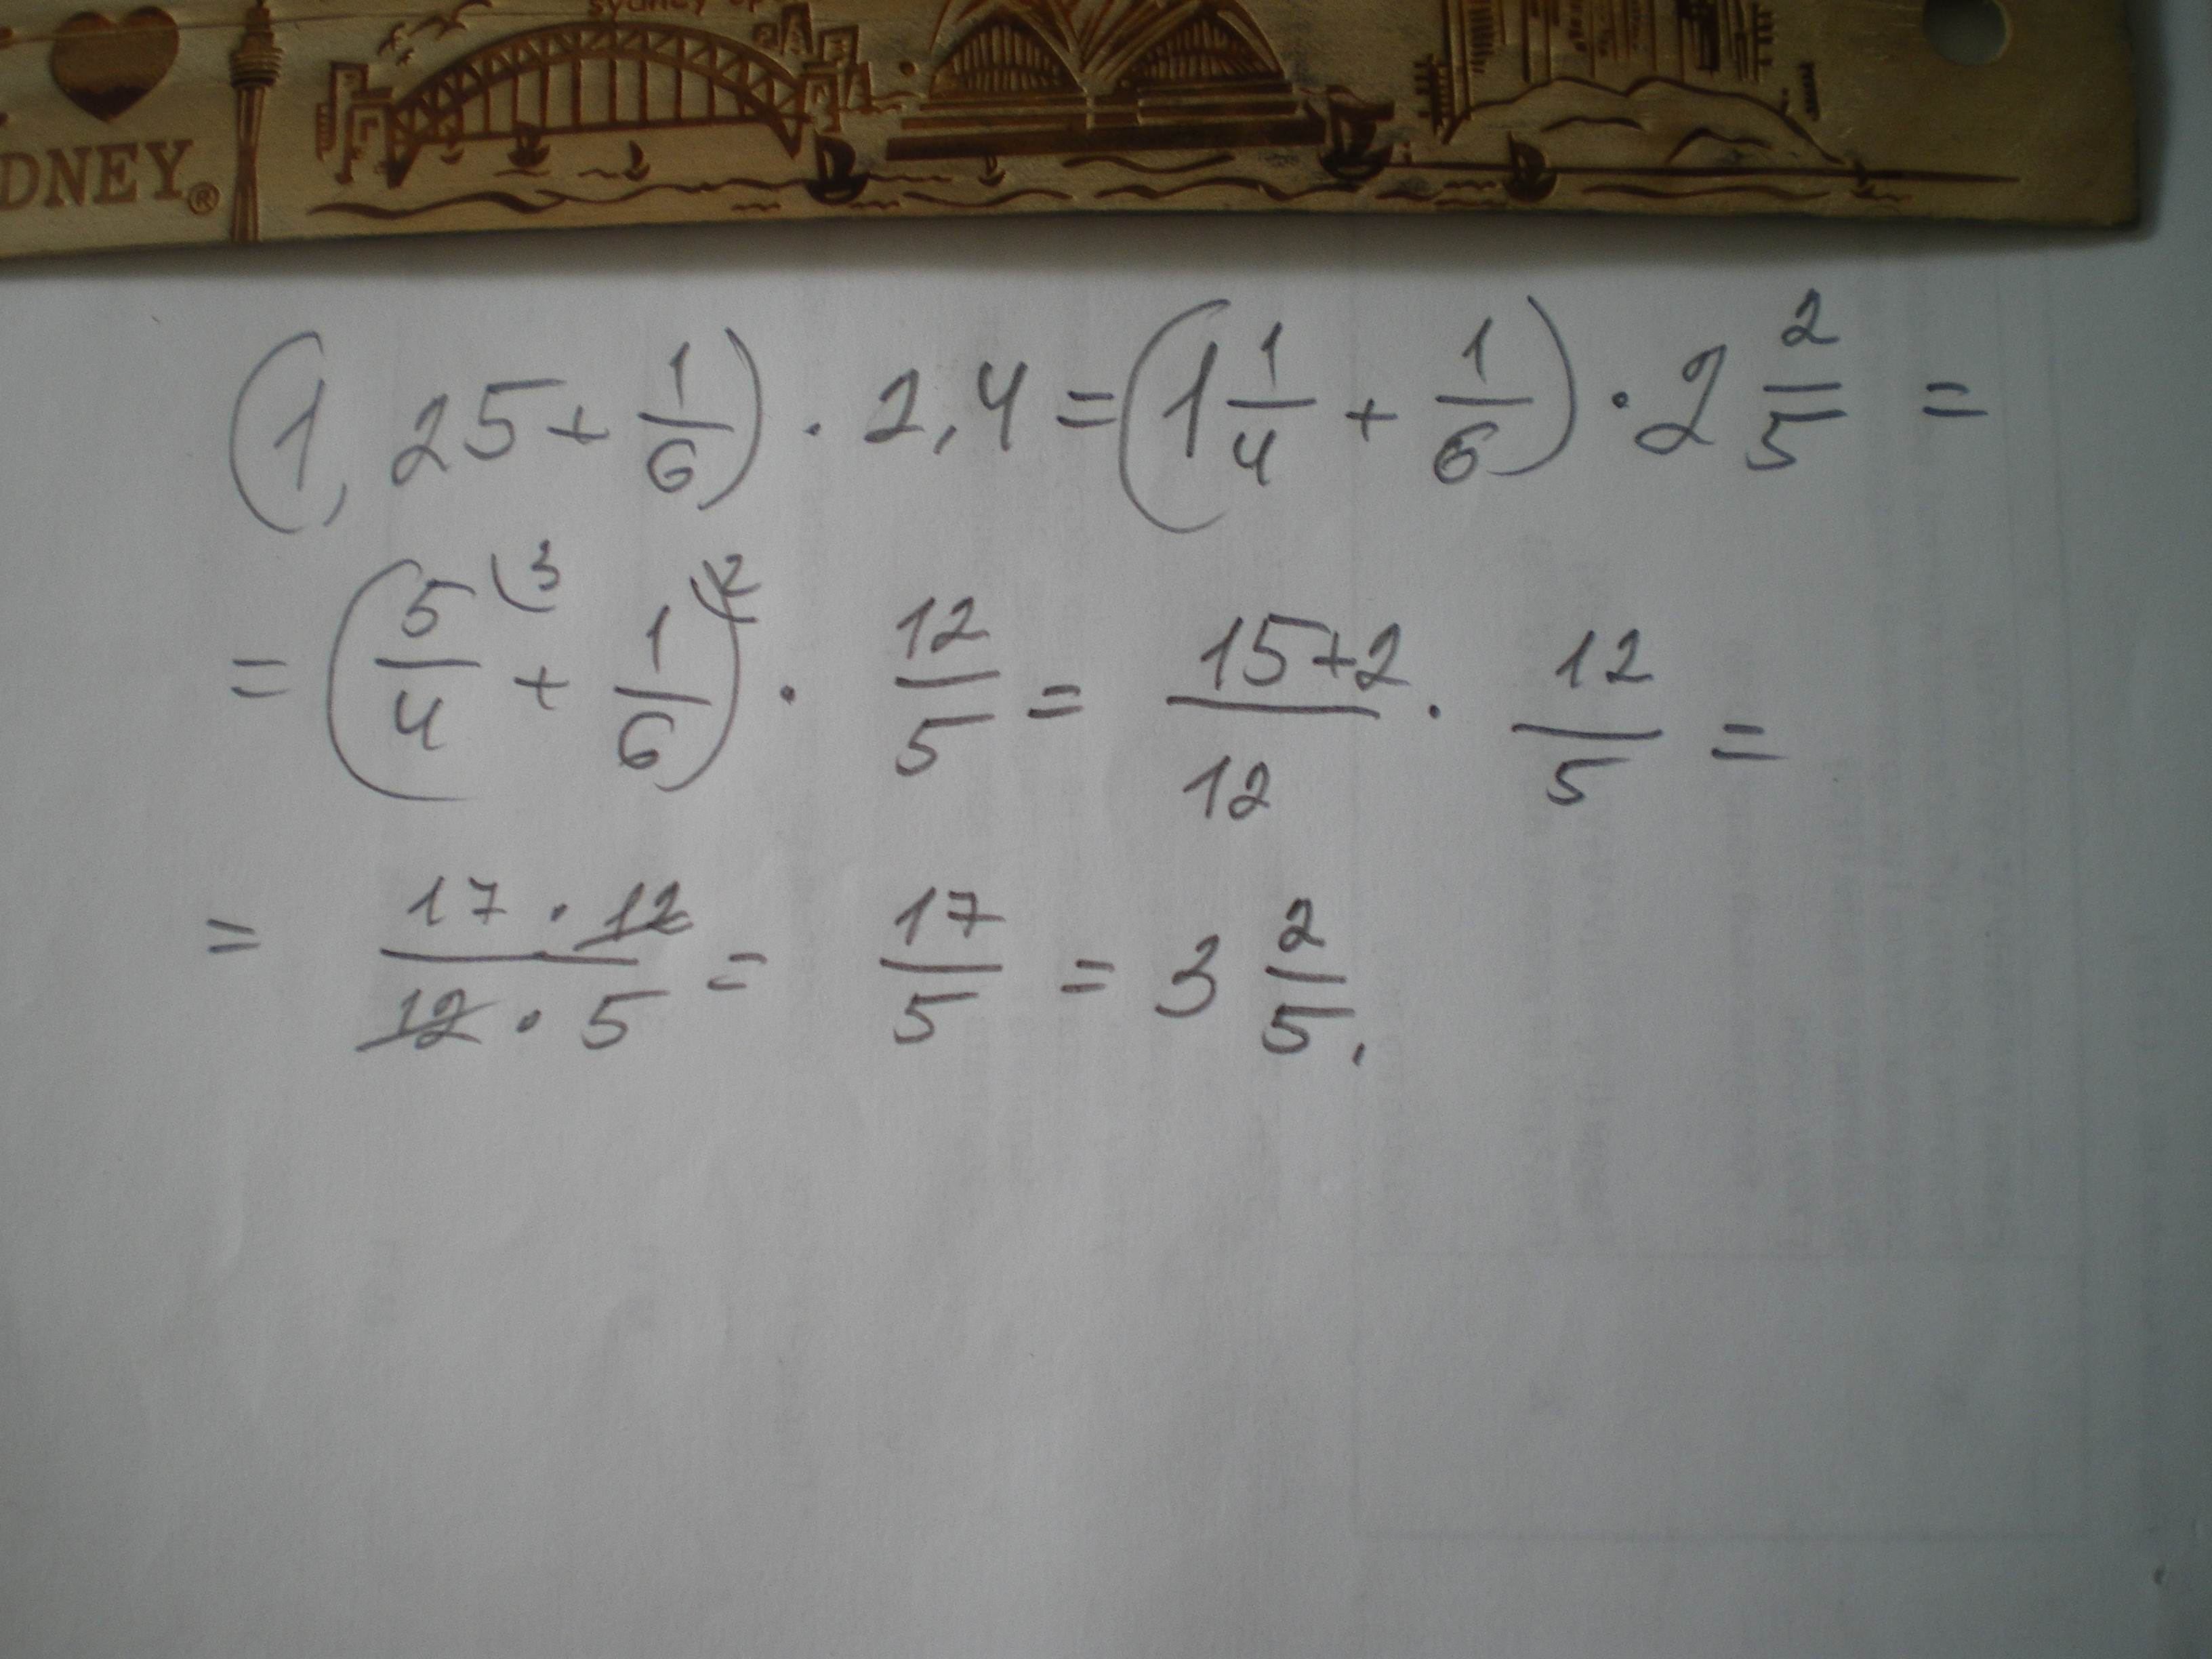 sydney op
DNEY®
(1,25 + 1/6) · 2,4 = (1 1/4 + 1/6) · 2 2/5 =
= (5/4 \3 + 1/6 \2) · 12/5 = 15+2/12 · 12/5 =
= 17 · 12/12 · 5 = 17/5 = 3 2/5.